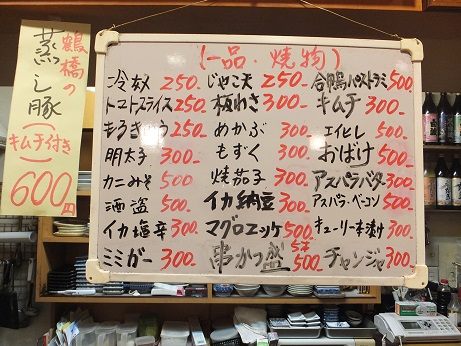 鶴橋の
蒸し豚
(キムチ付き)
600円
(一品・焼物)
冷奴 250-
トマトスライス 250-
もろきゅう 250-
明太子 300-
カニみそ 500-
酒盗 500-
イカ塩辛 300-
ミミガー 300-
じゃこ天 250-
板わさ 300-
めかぶ 300-
もずく 300-
焼茄子 300-
イカ納豆 300-
マグロユッケ 500-
串かつ盛 5本 500-
合鴨パストラミ 500-
キムチ 300-
エイヒレ 500-
おばけ 500-
アスパラバター 300-
アスパラ・ベーコン 500-
キューリ一本漬け 300-
チャンジャ 300-